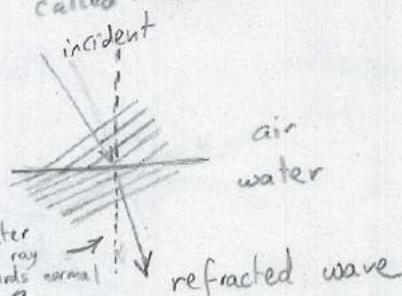 called
incident
air
water
ray
normal
refracted wave